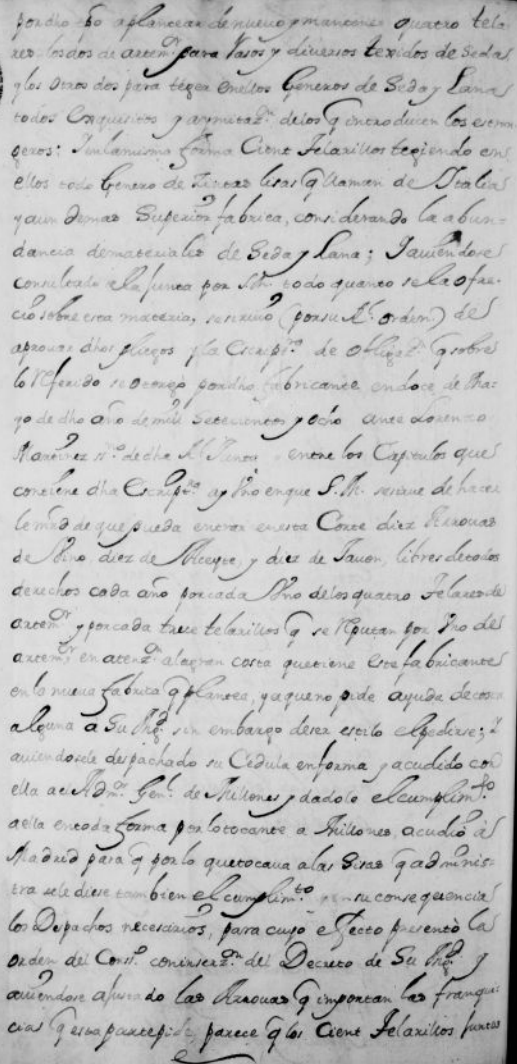 por dho tpo a plantear de nuevo y mantener quatro tela
res los dos de artemor para Rasos y diversos texidos de Seda
y los otros dos para teger en ellos Generos de Seda y Lana
todos exquisitos y a ymitazn de los q introducen los estran
geros; Y en la misma forma Cient Telarillos tegiendo en
ellos todo Genero de Zintas lisas q llaman de Italia
y aun de mas Superior fabrica, considerando la abun=
dancia de materiales de Seda y Lana; Y aviendose
consultado a la Junta por Sn todo quanto se la ofre
cio sobre esta materia, se sirvio (por su Rl orden) de
aprovar dhos pliegos y la Escriptra de obligazn q sobre
lo Referido se otorgo por dho fabricante en doce de Ma
yo de dho año de mill Setecientos y ocho ante Lorenzo
Martinez sno de dha Rl Junta entre los Capitulos que
contiene dha Escriptra ay Vno en que S. M. se sirve de hacer
le mrd de que pueda entrar en esta Corte diez Arrovas
de Vino, diez de Aceyte, y diez de Javon, libres de todos
derechos cada año por cada Vno de los quatro Telares de
artemor y por cada trece telarillos q se Reputan por Vno de
artemor en atenzn a la gran costa que tiene este fabricante
en lo nueva fabrica q plantea, y a que no pide ayuda de costa
alguna a Su Mgd sin embargo de ser estilo el pedirse; Y
aviendosele despachado su Cedula en forma y acudido con
ella al Admor Genl de Millones y dadolo el cumplimto
a ella en toda forma por lo tocante a Millones, acudio a
Madrid para q por lo que tocava a las Sisas q adminis=
tra se le diese tambien el cumplimto y en su consequencia
los Despachos necesarios, para cuyo efecto presentò la
orden del Conso con inserzon del Decreto de Su Mgd y
aviendose ajustado las Arrovas q importan las franqui
cias q esta parte pide parece q los Cient Telarillos juntos